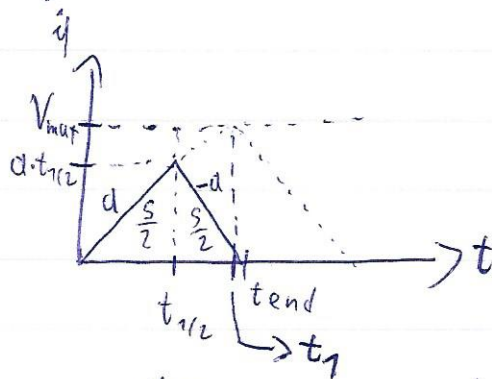 ẏ
Vmax
a·t1/2
a
-a
S/2
S/2
t
t1/2
tend
t1